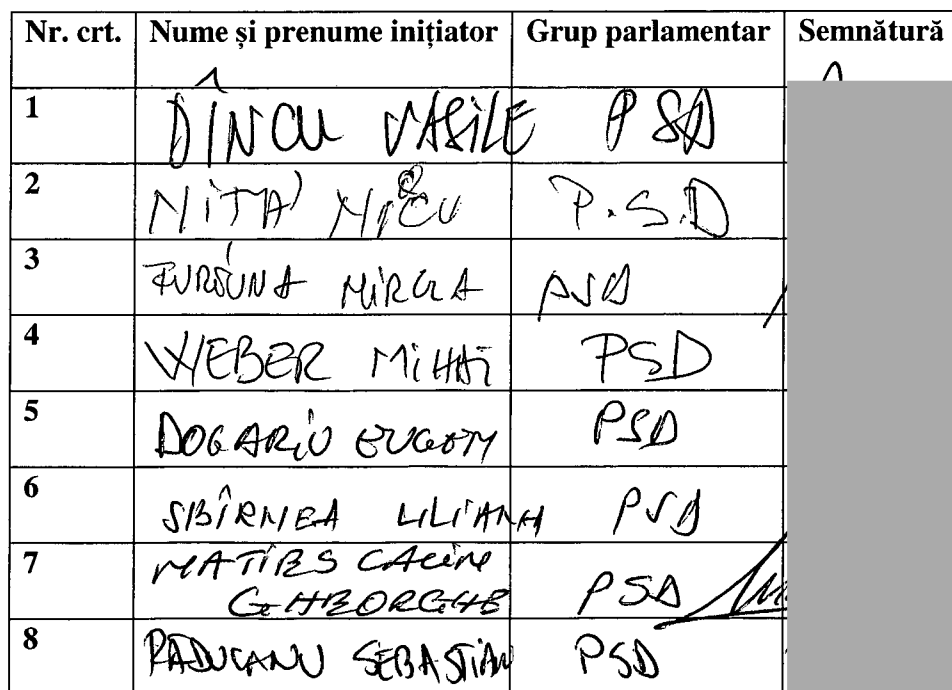 Nr. crt. Nume și prenume inițiator Grup parlamentar Semnătură
1 DÎNCU VASILE PSD
2 NIȚĂ NICU P.S.D
3 FURDUI MIRCEA PSD
4 WEBER MIHAI PSD
5 DOGARIU EUGEN PSD
6 SBÎRNEA LILIANA PSD
7 MATIEȘ CĂLIN
GHEORGHE PSD
8 RADUCANU SEBASTIAN PSD